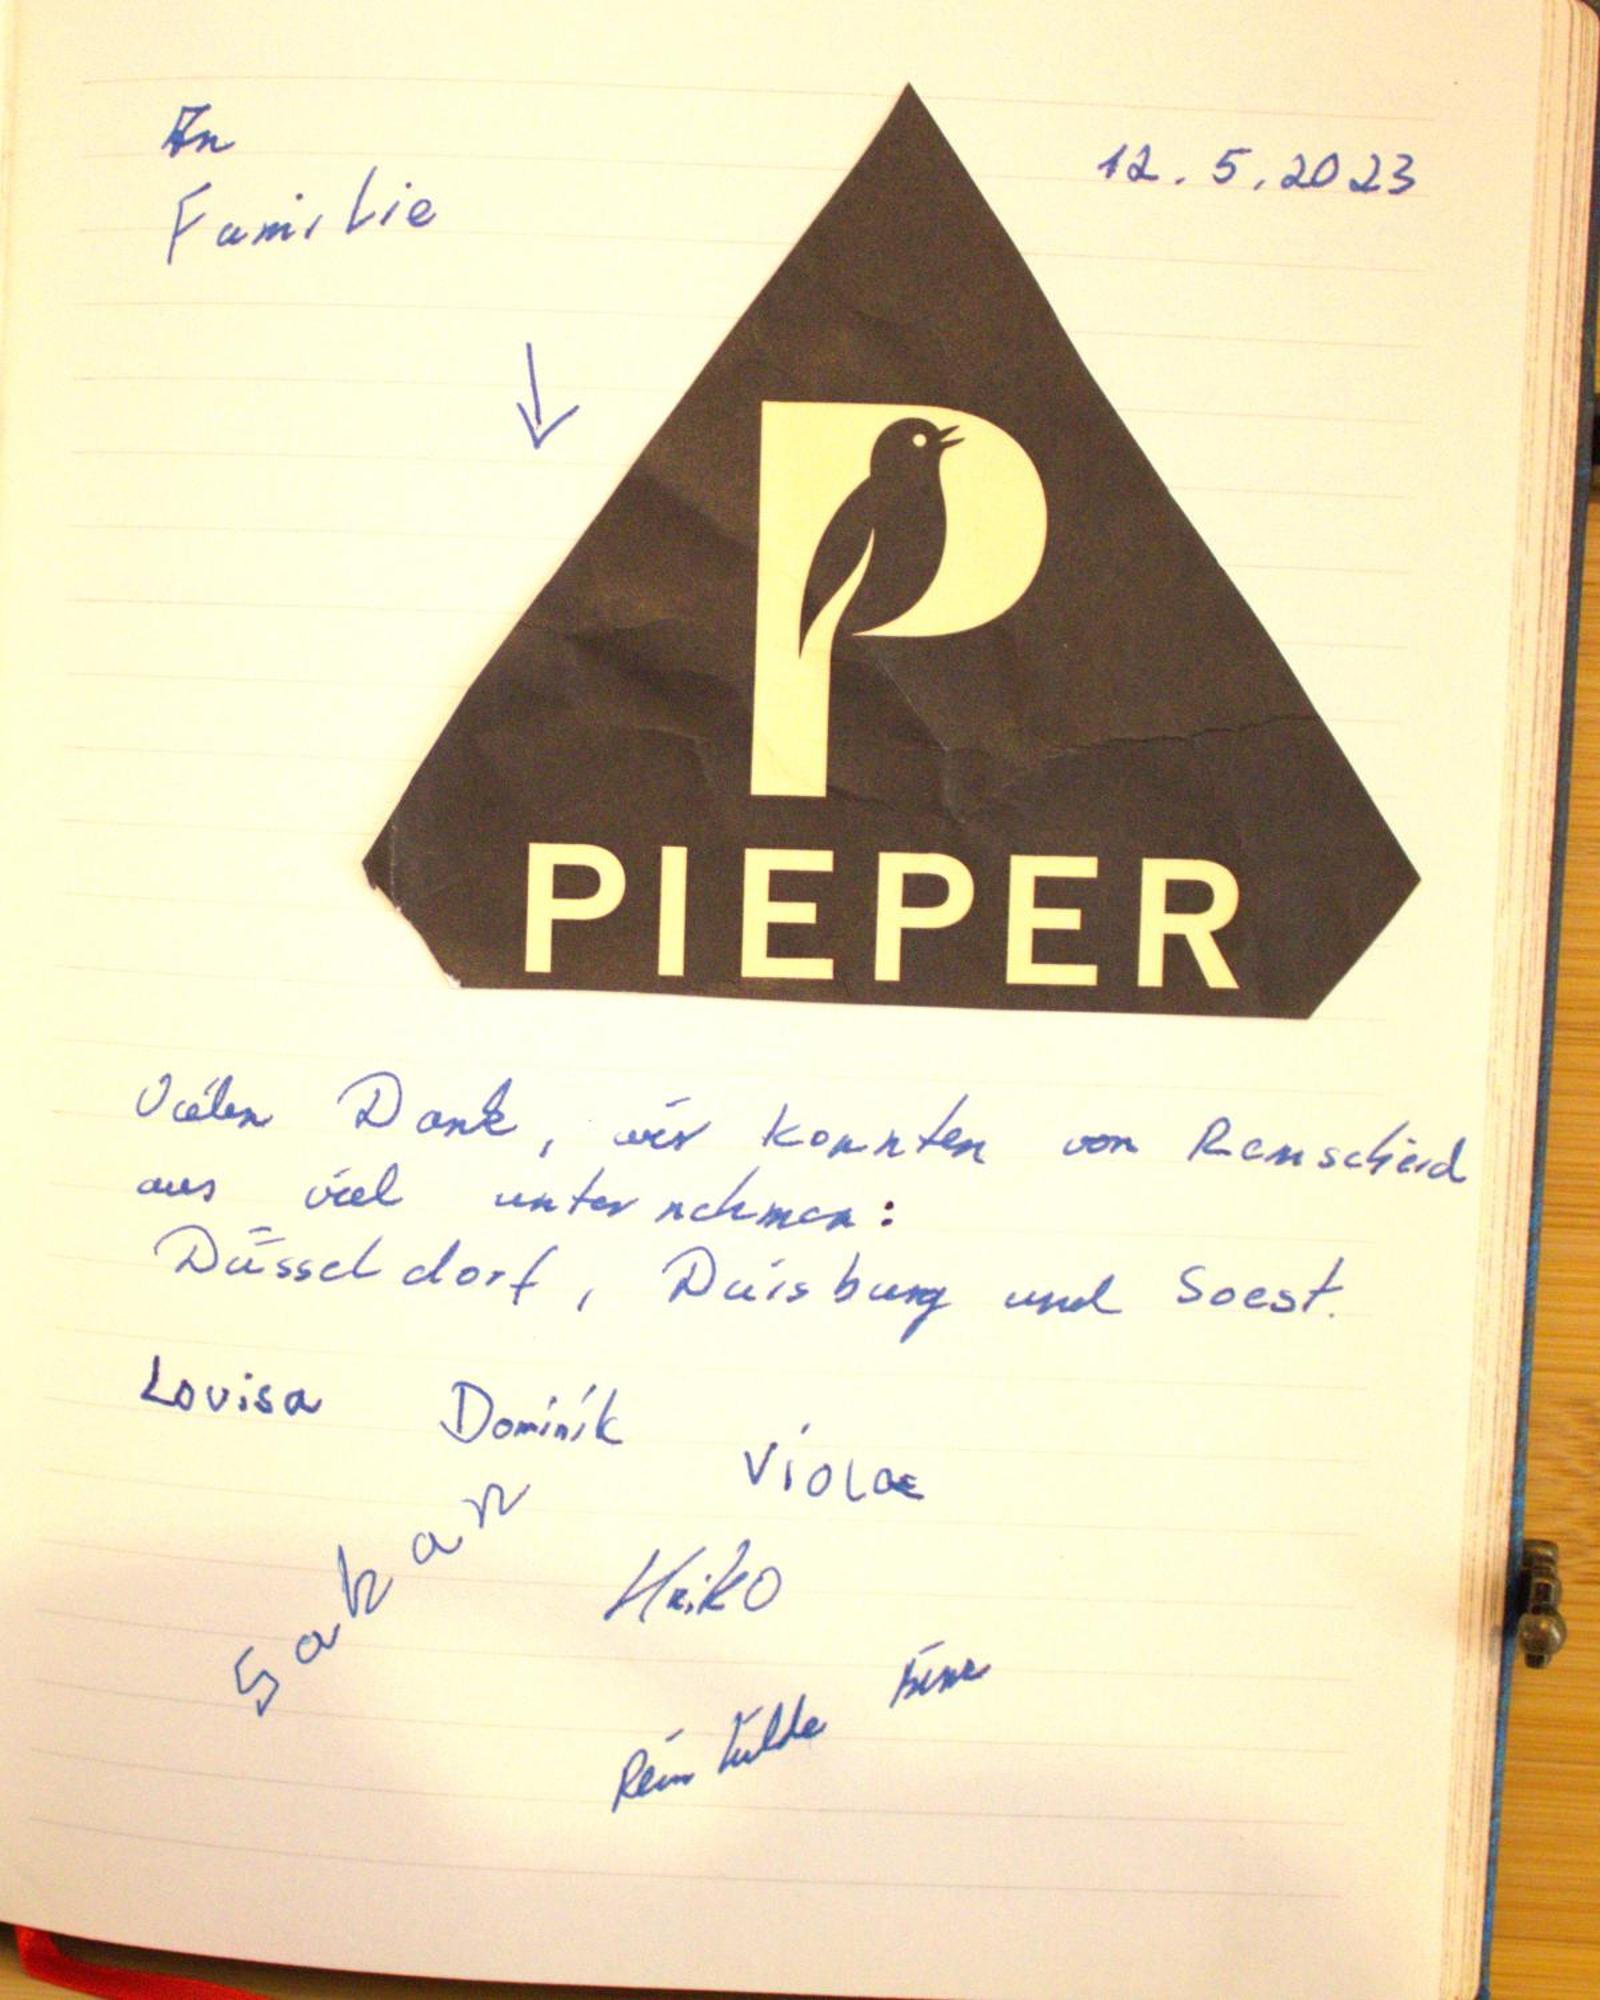 An
Familie
12.5.2023
P
PIEPER
Vielen Dank, wir konnten von Remscheid
aus viel unternehmen:
Düsseldorf, Duisburg und Soest.
Lovisa Dominik Viola
Heiko